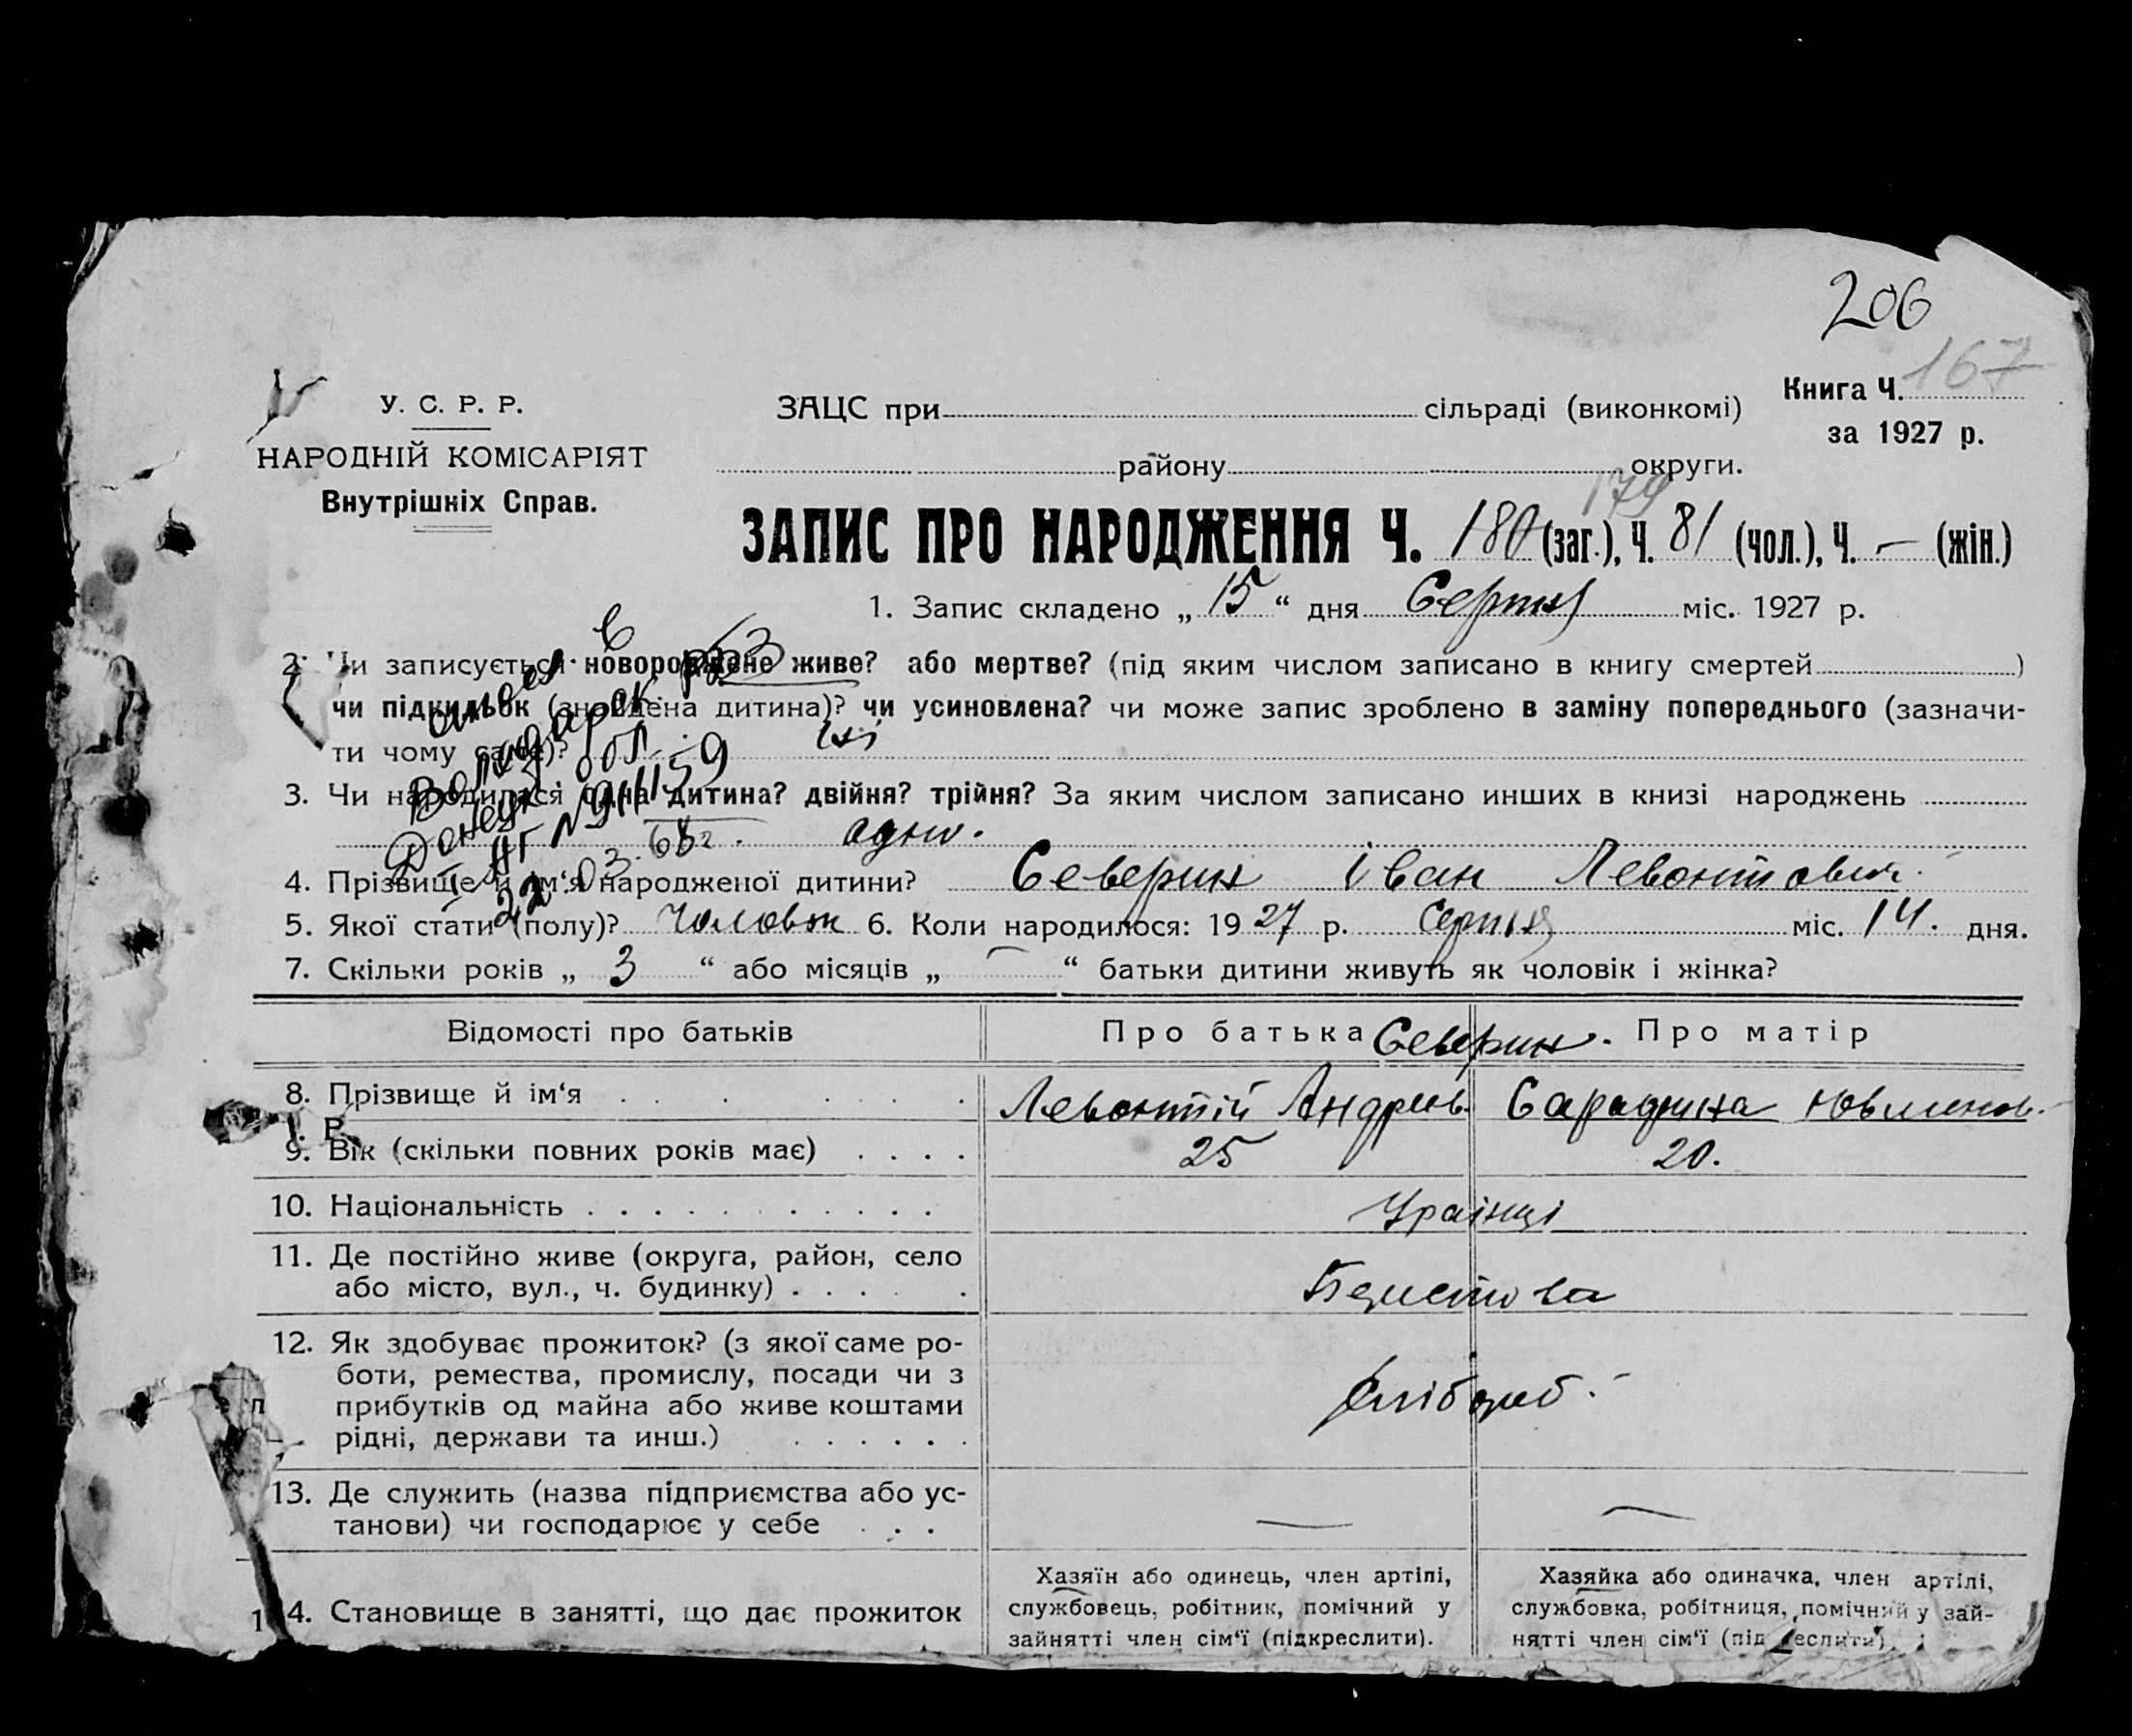 206
Книга Ч. 167
за 1927 р.
У. С. Р. Р.
НАРОДНІЙ КОМІСАРІЯТ
Внутрішніх Справ.
ЗАЦС при сільраді (виконкомі)
району округи.
179
ЗАПИС ПРО НАРОДЖЕННЯ Ч. 180 (заг.), Ч. 81 (чол.), Ч. — (жін.)
1. Запис складено „ 15 “ дня Серпня міс. 1927 р.
2. Чи записується новороджене живе? або мертве? (під яким числом записано в книгу смертей )
чи підкидьок (знайдена дитина)? чи усиновлена? чи може запис зроблено в заміну попереднього (зазначи-
ти чому саме)?
3. Чи народилася одна дитина? двійня? трійня? За яким числом записано инших в книзі народжень
одно.
Володарск.
Донецк. обл.
22.03.68г.
4. Прізвище й ім‘я народженої дитини? Северин Іван Левонтович.
5. Якої стати (полу)? Чоловік 6. Коли народилося: 1927 р. Серпня міс. 14. дня.
7. Скільки років „ 3 “ або місяців „ — “ батьки дитини живуть як чоловік і жінка?
Відомості про батьків Про батька Северин. Про матір
8. Прізвище й ім‘я Левонтій Андрієв.
9. Вік (скільки повних років має) 25 20.
10. Національність Украінці
11. Де постійно живе (округа, район, село
або місто, вул., ч. будинку)
12. Як здобуває прожиток? (з якої саме ро-
боти, ремества, промислу, посади чи з
прибутків од майна або живе коштами
рідні, держави та инш.) Хлібороб.
13. Де служить (назва підприємства або ус-
танови) чи господарює у себе — —
14. Становище в занятті, що дає прожиток
Хазяїн або одинець, член артілі,
службовець, робітник, помічний у
зайнятті член сім‘ї (підкреслити).
Хазяйка або одиначка, член артілі,
службовка, робітниця, помічний у зай-
нятті член сім‘ї (підкреслити)